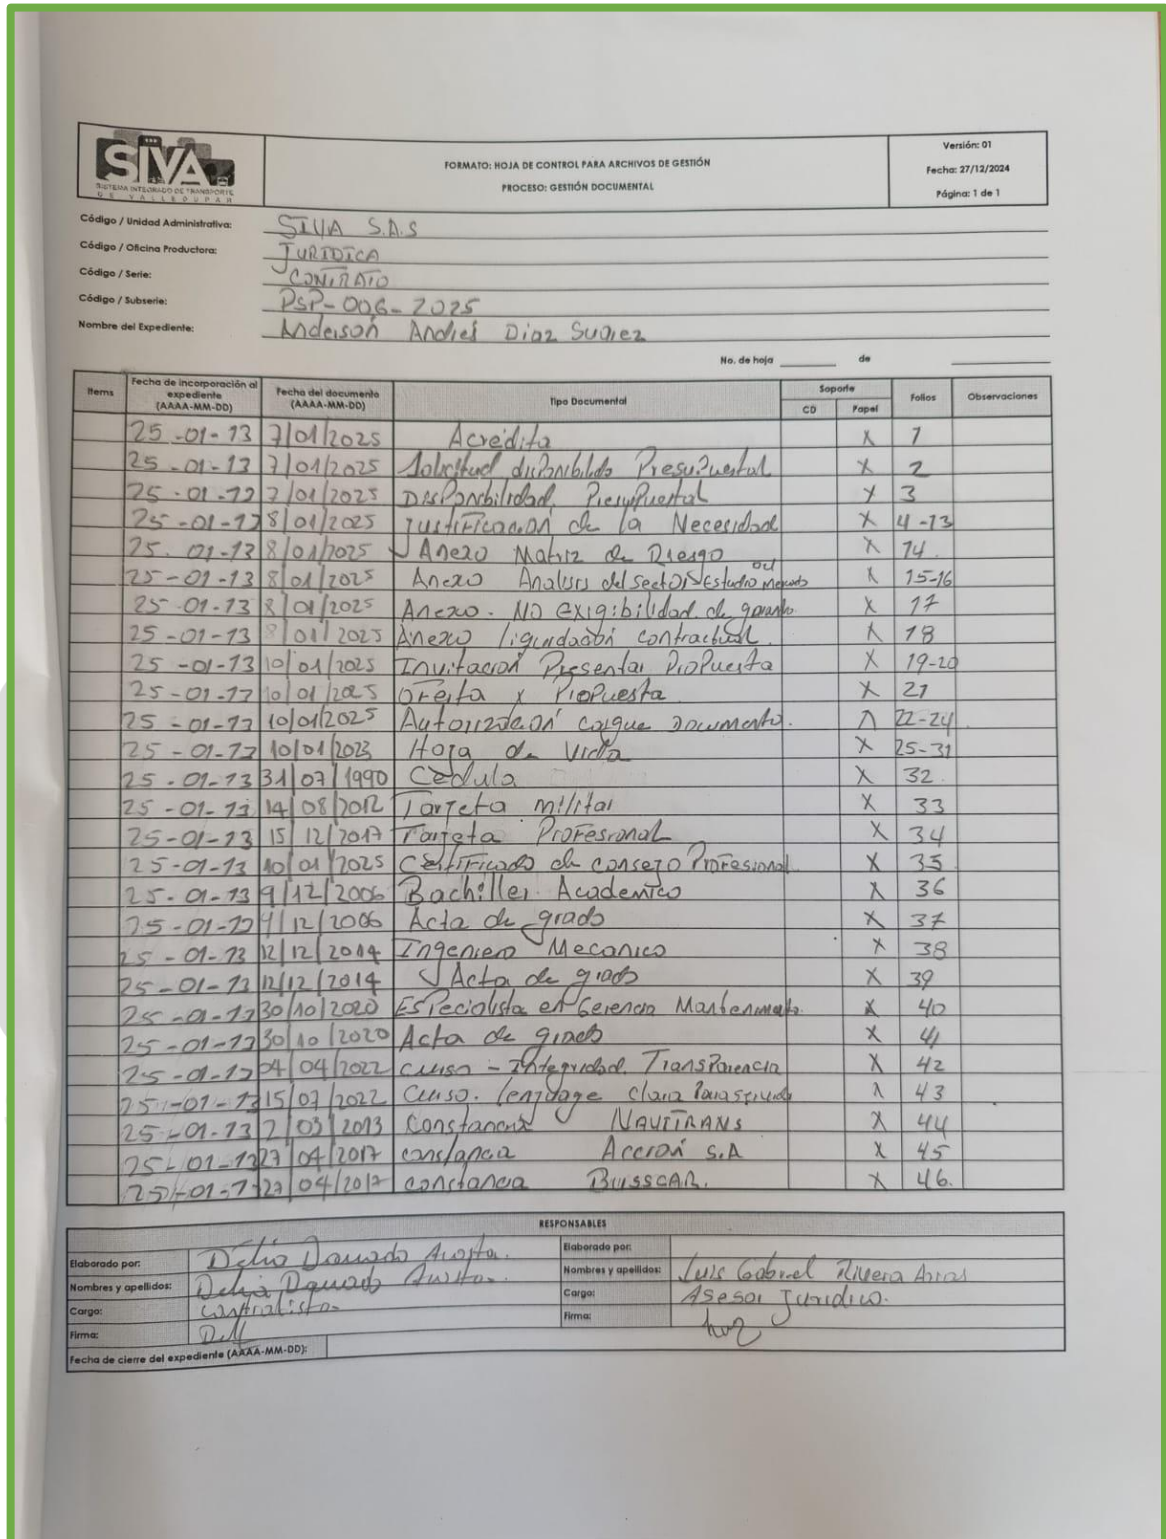 SIVA
SISTEMA INTEGRADO DE TRANSPORTE
DE VALLEDUPAR
FORMATO: HOJA DE CONTROL PARA ARCHIVOS DE GESTIÓN
PROCESO: GESTIÓN DOCUMENTAL
Versión: 01
Fecha: 27/12/2024
Página: 1 de 1
Código / Unidad Administrativa: SIVA S.A.S
Código / Oficina Productora: JURIDICA
Código / Serie: CONTRATO
Código / Subserie: PSP-006-2025
Nombre del Expediente: Anderson Andres Diaz Suarez
No. de hoja de
Items Fecha de incorporación al expediente (AAAA-MM-DD) Fecha del documento (AAAA-MM-DD) Tipo Documental Soporte CD Papel Folios Observaciones
25-01-13 7/01/2025 Acredita X 1
25-01-13 7/01/2025 Solicitud Presupuestal X 2
25-01-13 7/01/2025 Disponibilidad Presupuestal X 3
25-01-13 8/01/2025 Justificación de la Necesidad X 4-13
25-01-13 8/01/2025 Anexo Matriz de Riesgo X 14.
25-01-13 8/01/2025 Anexo Analisis del sector Estudio X 15-16
25-01-13 8/01/2025 Anexo. NO exigibilidad de X 17
25-01-13 8/01/2025 Anexo liquidación contractual. X 18
25-01-13 10/01/2025 Invitación Presentar Propuesta X 19-20
25-01-13 10/01/2025 Oferta Propuesta X 21
25-01-13 10/01/2025 Autorización cargue Documento. X 22-24
25-01-13 10/01/2023 Hoja de Vida X 25-31
25-01-13 31/07/1990 Cedula X 32.
25-01-13 14/08/2012 Tarjeta militar X 33
25-01-13 15/12/2017 Tarjeta Profesional X 34
25-01-13 10/01/2025 Certificado de consejo Profesional. X 35
25-01-13 9/12/2006 Bachiller Academico X 36
25-01-13 9/12/2006 Acta de grado X 37
25-01-13 12/12/2014 Ingeniero Mecanico X 38
25-01-13 12/12/2014 Acta de grado X 39
25-01-13 30/10/2020 Especialista en Gerencia X 40
25-01-13 30/10/2020 Acta de grado X 41
25-01-13 04/04/2022 Curso - Integridad. Transparencia X 42
25-01-13 15/07/2022 Curso. X 43
25-01-13 2/03/2013 Constancia NAVITRANS X 44
25-01-13 27/04/2017 constancia Acción S.A X 45
25-01-13 27/04/2017 constancia BUSSCAR. X 46.
RESPONSABLES
Elaborado por:
Nombres y apellidos:
Cargo: Contratista
Firma:
Elaborado por:
Nombres y apellidos: Luis Gabriel Rivera Arias
Cargo: Asesor Juridico.
Firma:
Fecha de cierre del expediente (AAAA-MM-DD):